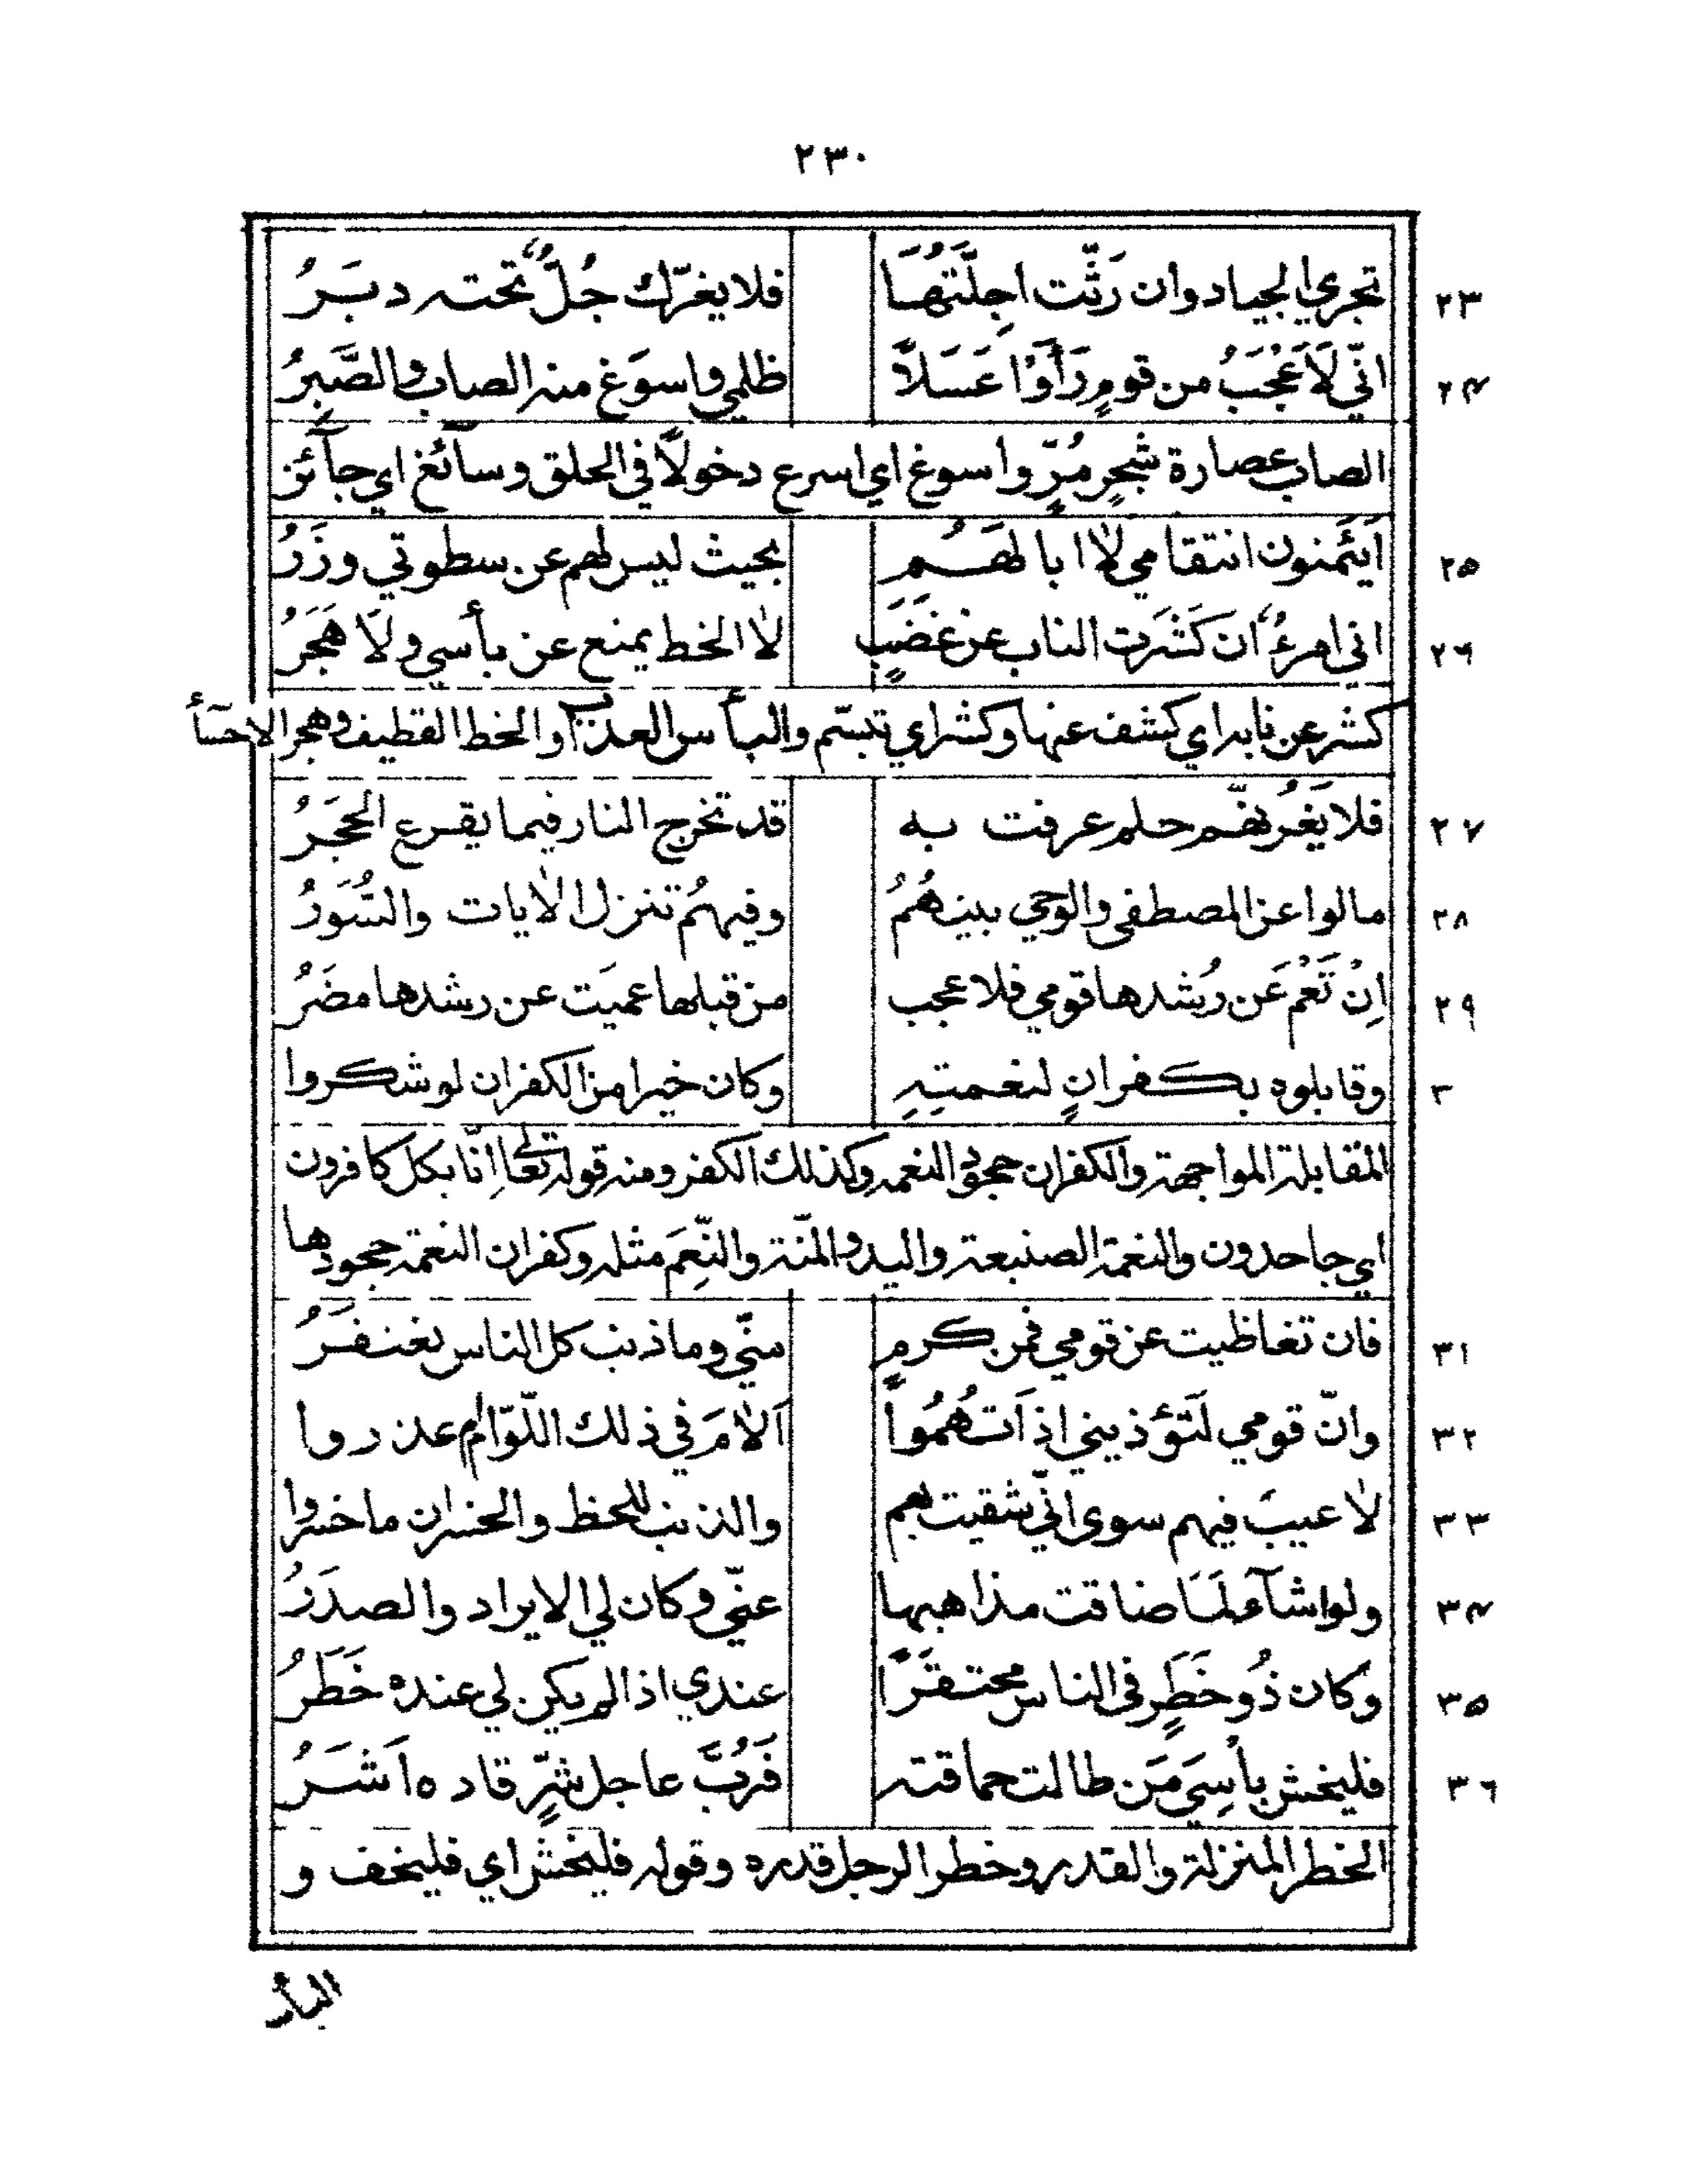 ٢٣٠
٢٣ تجري الجياد وان رَثّت اجِلّتُهَا فلا يغرّك جُلٌّ تحته دبَرُ
٢٤ انّي لَأَعْجَبُ من قومٍ رَأَوْا عَسَلًا ظلمي واسوَغ منه الصاب والصَّبِرُ
الصاب عصارة شجرٍ مُرٍّ واسوغ اي اسرع دخولًا في الحلق وسآئغ اي جآئز
٢٥ اَيَئْمنون انتقامي لا ابا لهَُمِ بحيث ليس لهم عن سطوتي وزَرُ
٢٦ اني امرءٌ ان كَشَرت الناب عن غَضَبٍ لا الخط يمنع عن بأسي ولَا هَجَرُ
كشر عن نابه اي كشف عنها وكشر اي تبسّم والبأس العذاب والخط القطيف وهجر الاحسآ
٢٧ فلا يَغُرنهّم حلم عرفت به قد تخرج النار فيما يقرع الحَجَرُ
٢٨ مالوا عن المصطفى والوحي بينهُمُ وفيهمُ تنزل الآيات والسُّوَرُ
٢٩ اِنْ تَعْمَ عَن رُشدها قومي فلا عجب من قبلها عميَت عن رشدها مضَرُ
٣ وقابلوه بكفرانٍ لنعمتِهِ وكان خيرا من الكفران لو شكروا
المقابلة المواجهة والكفران جحود النعمه وكذلك الكفر ومنه قوله تعالى اِنّا بكل كافرون
اي جاحدون والنعمة الصنيعة واليد والمنّة والنِّعَم مثله وكفران النعمة جحودها
٣١ فان تغاظيت عن قومي فمن كرمٍ منّي وما ذنب كل الناس يغتفَرُ
٣٢ وانّ قومي لَتؤذيني اذَاتهُمُوا اَلامَ في ذلك اللّوّام ام عذروا
٣٣ لا عيبَ فيهم سوى انّي شقيت بهم والذنب للحظ والخسران ما خسروا
٣٤ ولو اشآء لمَا ضاقت مذاهبها عنّي وكان لي الايراد والصدَرُ
٣٥ وكان ذُو خَطَرٍ في الناس محتقَرًا عندي اذا لم يكن لي عنده خَطَرُ
٣٦ فليخش بأسِيَ مَن طالت حماقته فَرُبَّ عاجل شرٍّ قاده اَشَرُ
الخطر المنزلة والقدر وخطر الرجل قدره وقوله فليخش اي فليخف و
البأس